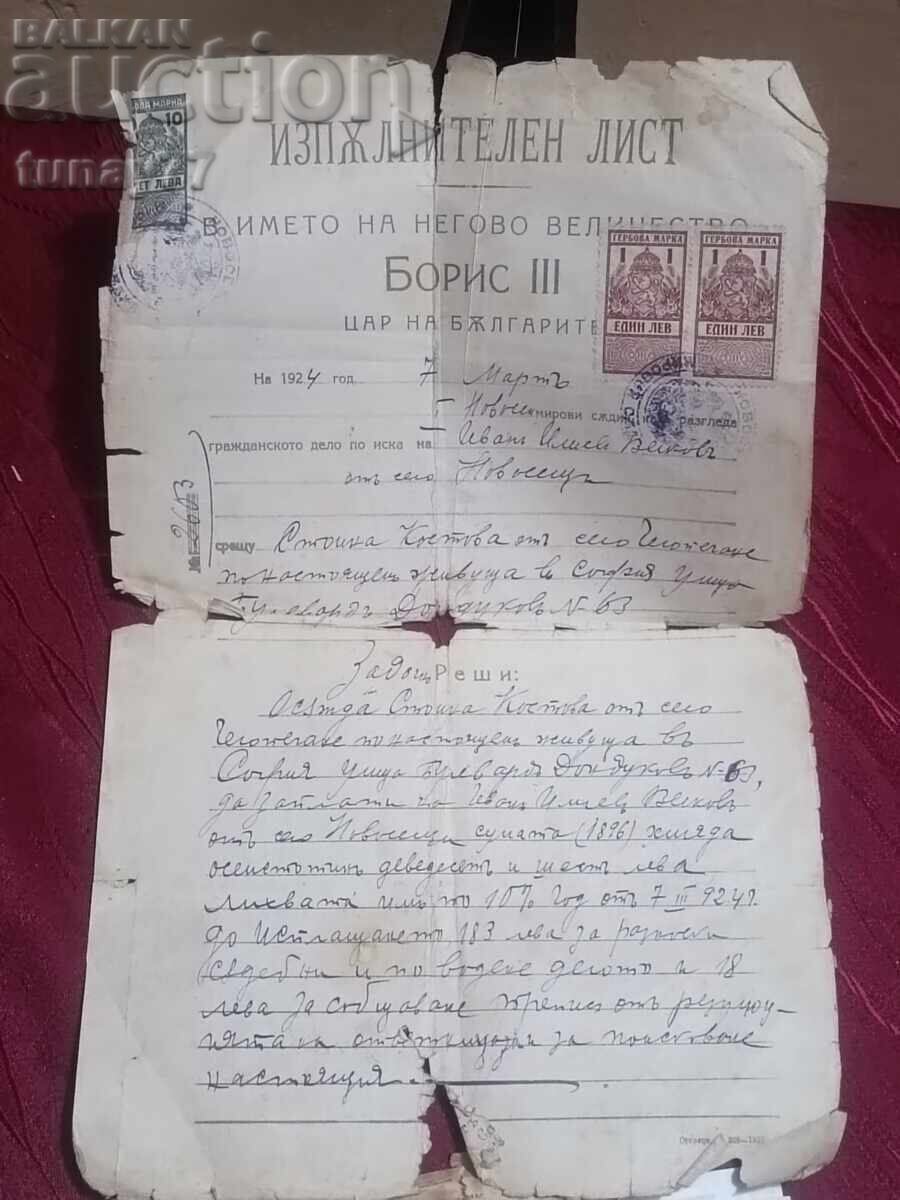 BALKAN
auction
ГЕРБОВА МАРКА
10
ЛЕВА
ИЗПѪЛНИТЕЛЕН ЛИСТ
В ИМЕТО НА НЕГОВО ВЕЛИЧЕСТВО
БОРИС III
ЦАР НА БѪЛГАРИТЕ
ГЕРБОВА МАРКА
1 1
ЕДИН ЛЕВ
ГЕРБОВА МАРКА
1 1
ЕДИН ЛЕВ
На 1924 год. 7 Мартъ
мирови сѫдия разгледа
гражданското дело по иска на Иванъ Илиев Вековъ
отъ село Новоселци
№ 2603
срещу Стоина Костова отъ село
понастоящем живуща в София Улица
Булевардъ Дондуковъ N 63
Задочно Реши:
Осѫжда Стоина Костова отъ село
понастоящем живуща въ
София Улица Булевардъ Дондуковъ N 63,
да заплати на Иванъ Илиев Вековъ
отъ село Новоселци сумата (1896) хиляда
осемстотин деведесетъ и шест лева
лихвата им по 10% год отъ 7 III 924 г.
до исплащането, 183 лева за разноски
съдебни и по водене делото и 18
лева за съобщаване препис отъ резолю-
цията на за
настоящия